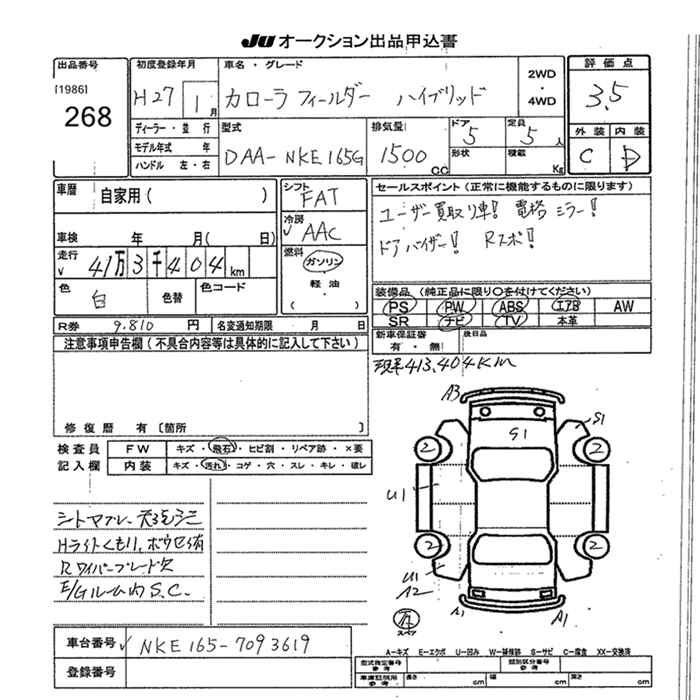 JU オークション出品申込書
出品番号
[1986]
268
初度登録年月
H27 1月
車名・グレード
カローラ フィールダー ハイブリッド
2WD
・
4WD
評価点
3.5
ディーラー・並行
モデル年式 年
ハンドル 左・右
型式
DAA-NKE165G
排気量
1500 cc
ドア
5
定員
5人
形状
積載
Kg
外装 内装
C D
車歴
自家用( )
車検 年 月( 日)
走行
41万3千404km
色
白
色替
色コード
シフト
FAT
冷房
AAC
燃料
ガソリン
・
軽油
・
( )
セールスポイント(正常に機能するものに限ります)
ユーザー買取り車! 電格ミラー!
ドアバイザー! Rスポ!
装備品(純正品に限り○を付けてください)
PS PW ABS エアB AW
SR ナビ TV 本革
R券 9,810 円 名変通知期限 月 日
新車保証書
有・無
後日品
注意事項申告欄(不具合内容等は具体的に記入して下さい)
現車413,404Km
修復歴 有〔箇所 〕
検査員
記入欄
FW キズ・飛石・ヒビ割・リペア跡・×要
内装 キズ・汚れ・コゲ・穴・スレ・キレ・破レ
シートスレ
Hライトくもり、
Rワイパーブレード欠
E/Gルーム内S.C.
A3
S1
S1
2
2
U1
2
2
U1
A2
A1
A1
スペア
車台番号 NKE165-7093619
登録番号
A-キズ E-エクボ U-凹み W-補修跡 S-サビ C-腐食 XX-交換済
型式指定番号
類別区分番号
長さ cm 幅 cm 高さ cm